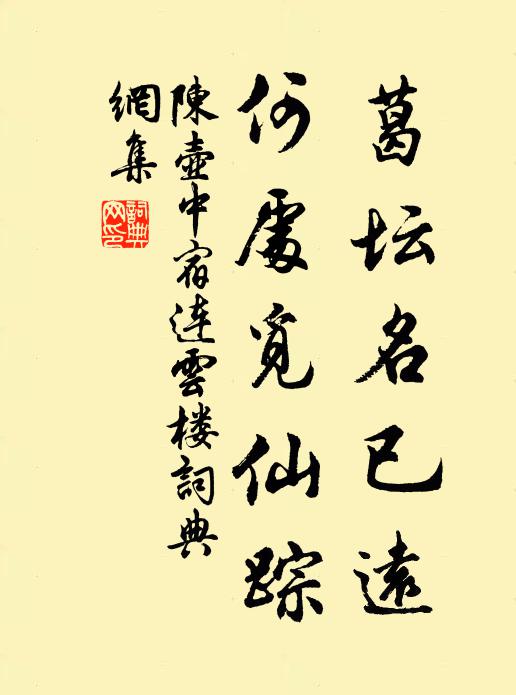 葛坛名已遠
何處觅仙踪
陳壺中宿連雲楼詞典
網集
詞典
网印